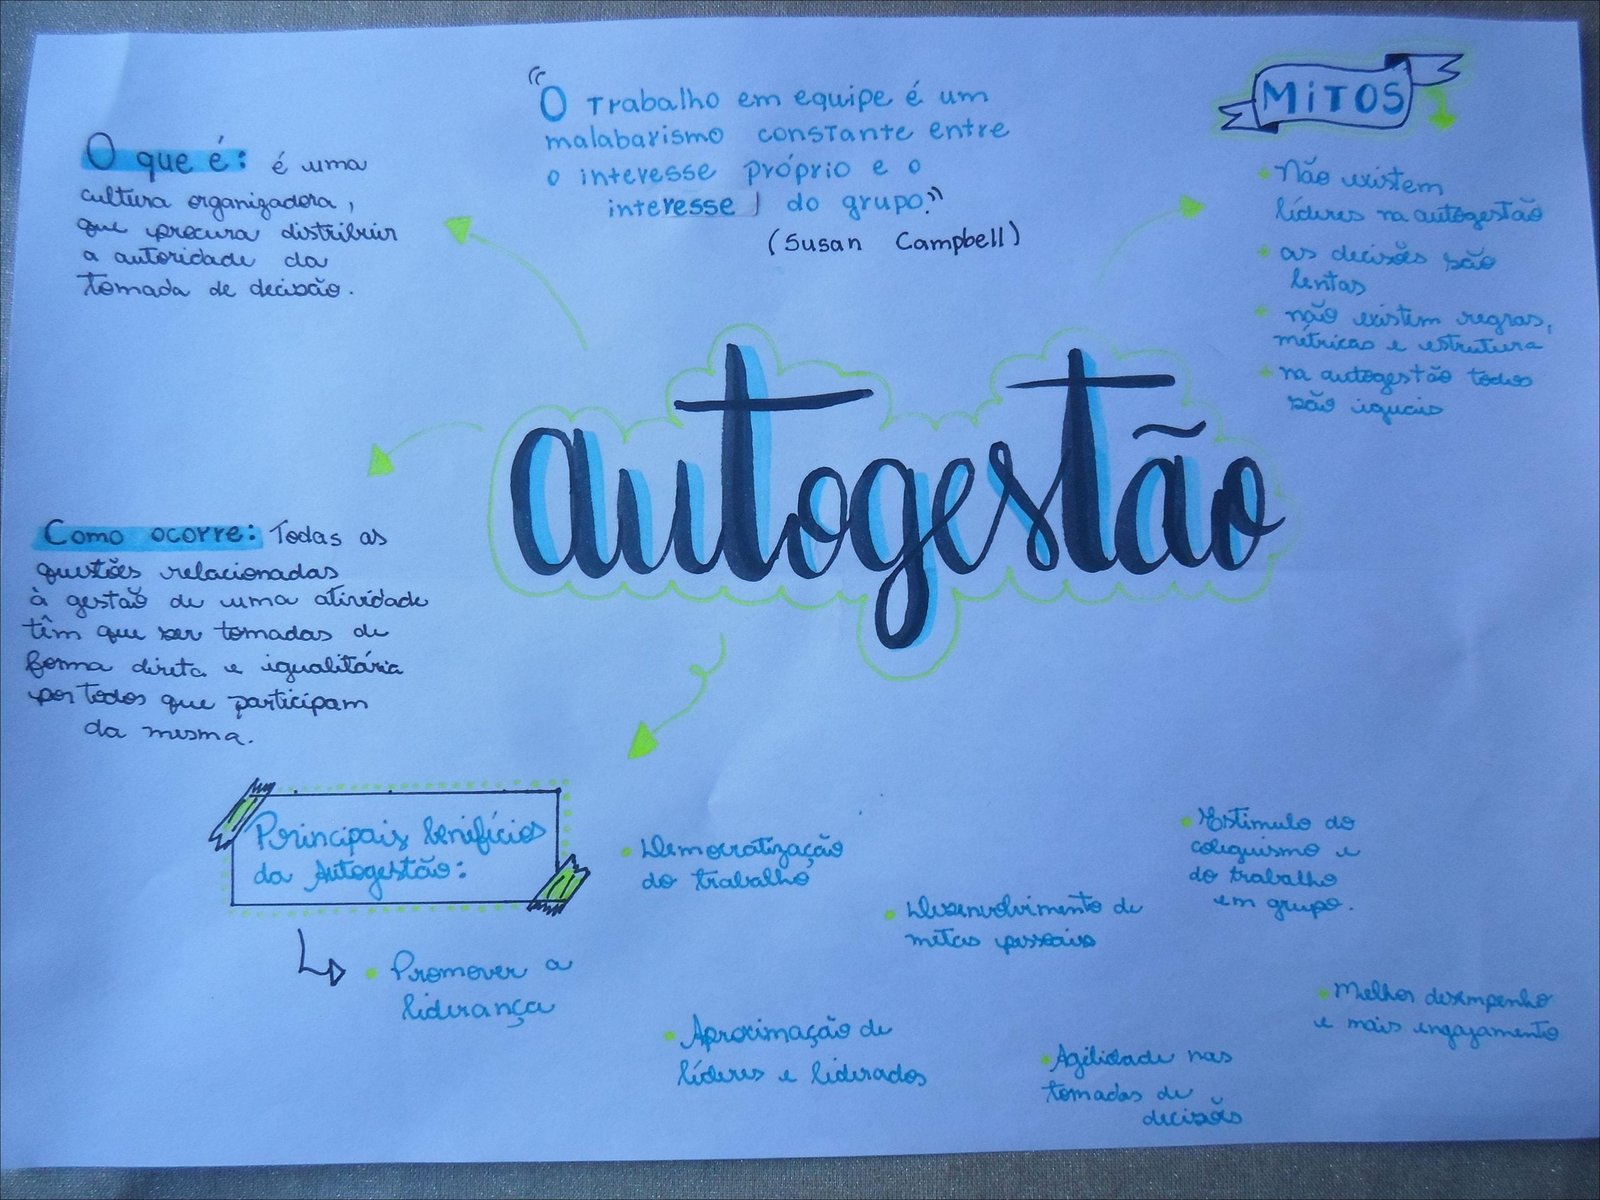 "O Trabalho em equipe é um
malabarismo constante entre
o interesse próprio e o
interesse do grupo."
(Susan Campbell)
O que é: é uma
cultura organizadora,
que procura distribuir
a autoridade da
tomada de decisão.
MITOS
Não existem
líderes na autogestão
as decisões são
lentas
não existem regras,
métricas e estrutura
na autogestão todos
são iguais
autogestão
Como ocorre: Todas as
questões relacionadas
à gestão de uma atividade
têm que ser tomadas de
forma direta e igualitária
por todos que participam
da mesma.
Principais benefícios
da Autogestão:
Promover a
liderança
Democratização
do trabalho
Aproximação de
líderes e liderados
Desenvolvimento de
metas pessoais
Agilidade nas
tomadas de
decisões
Estimulo do
coleguismo e
do trabalho
em grupo.
Melhor desempenho
e mais engajamento